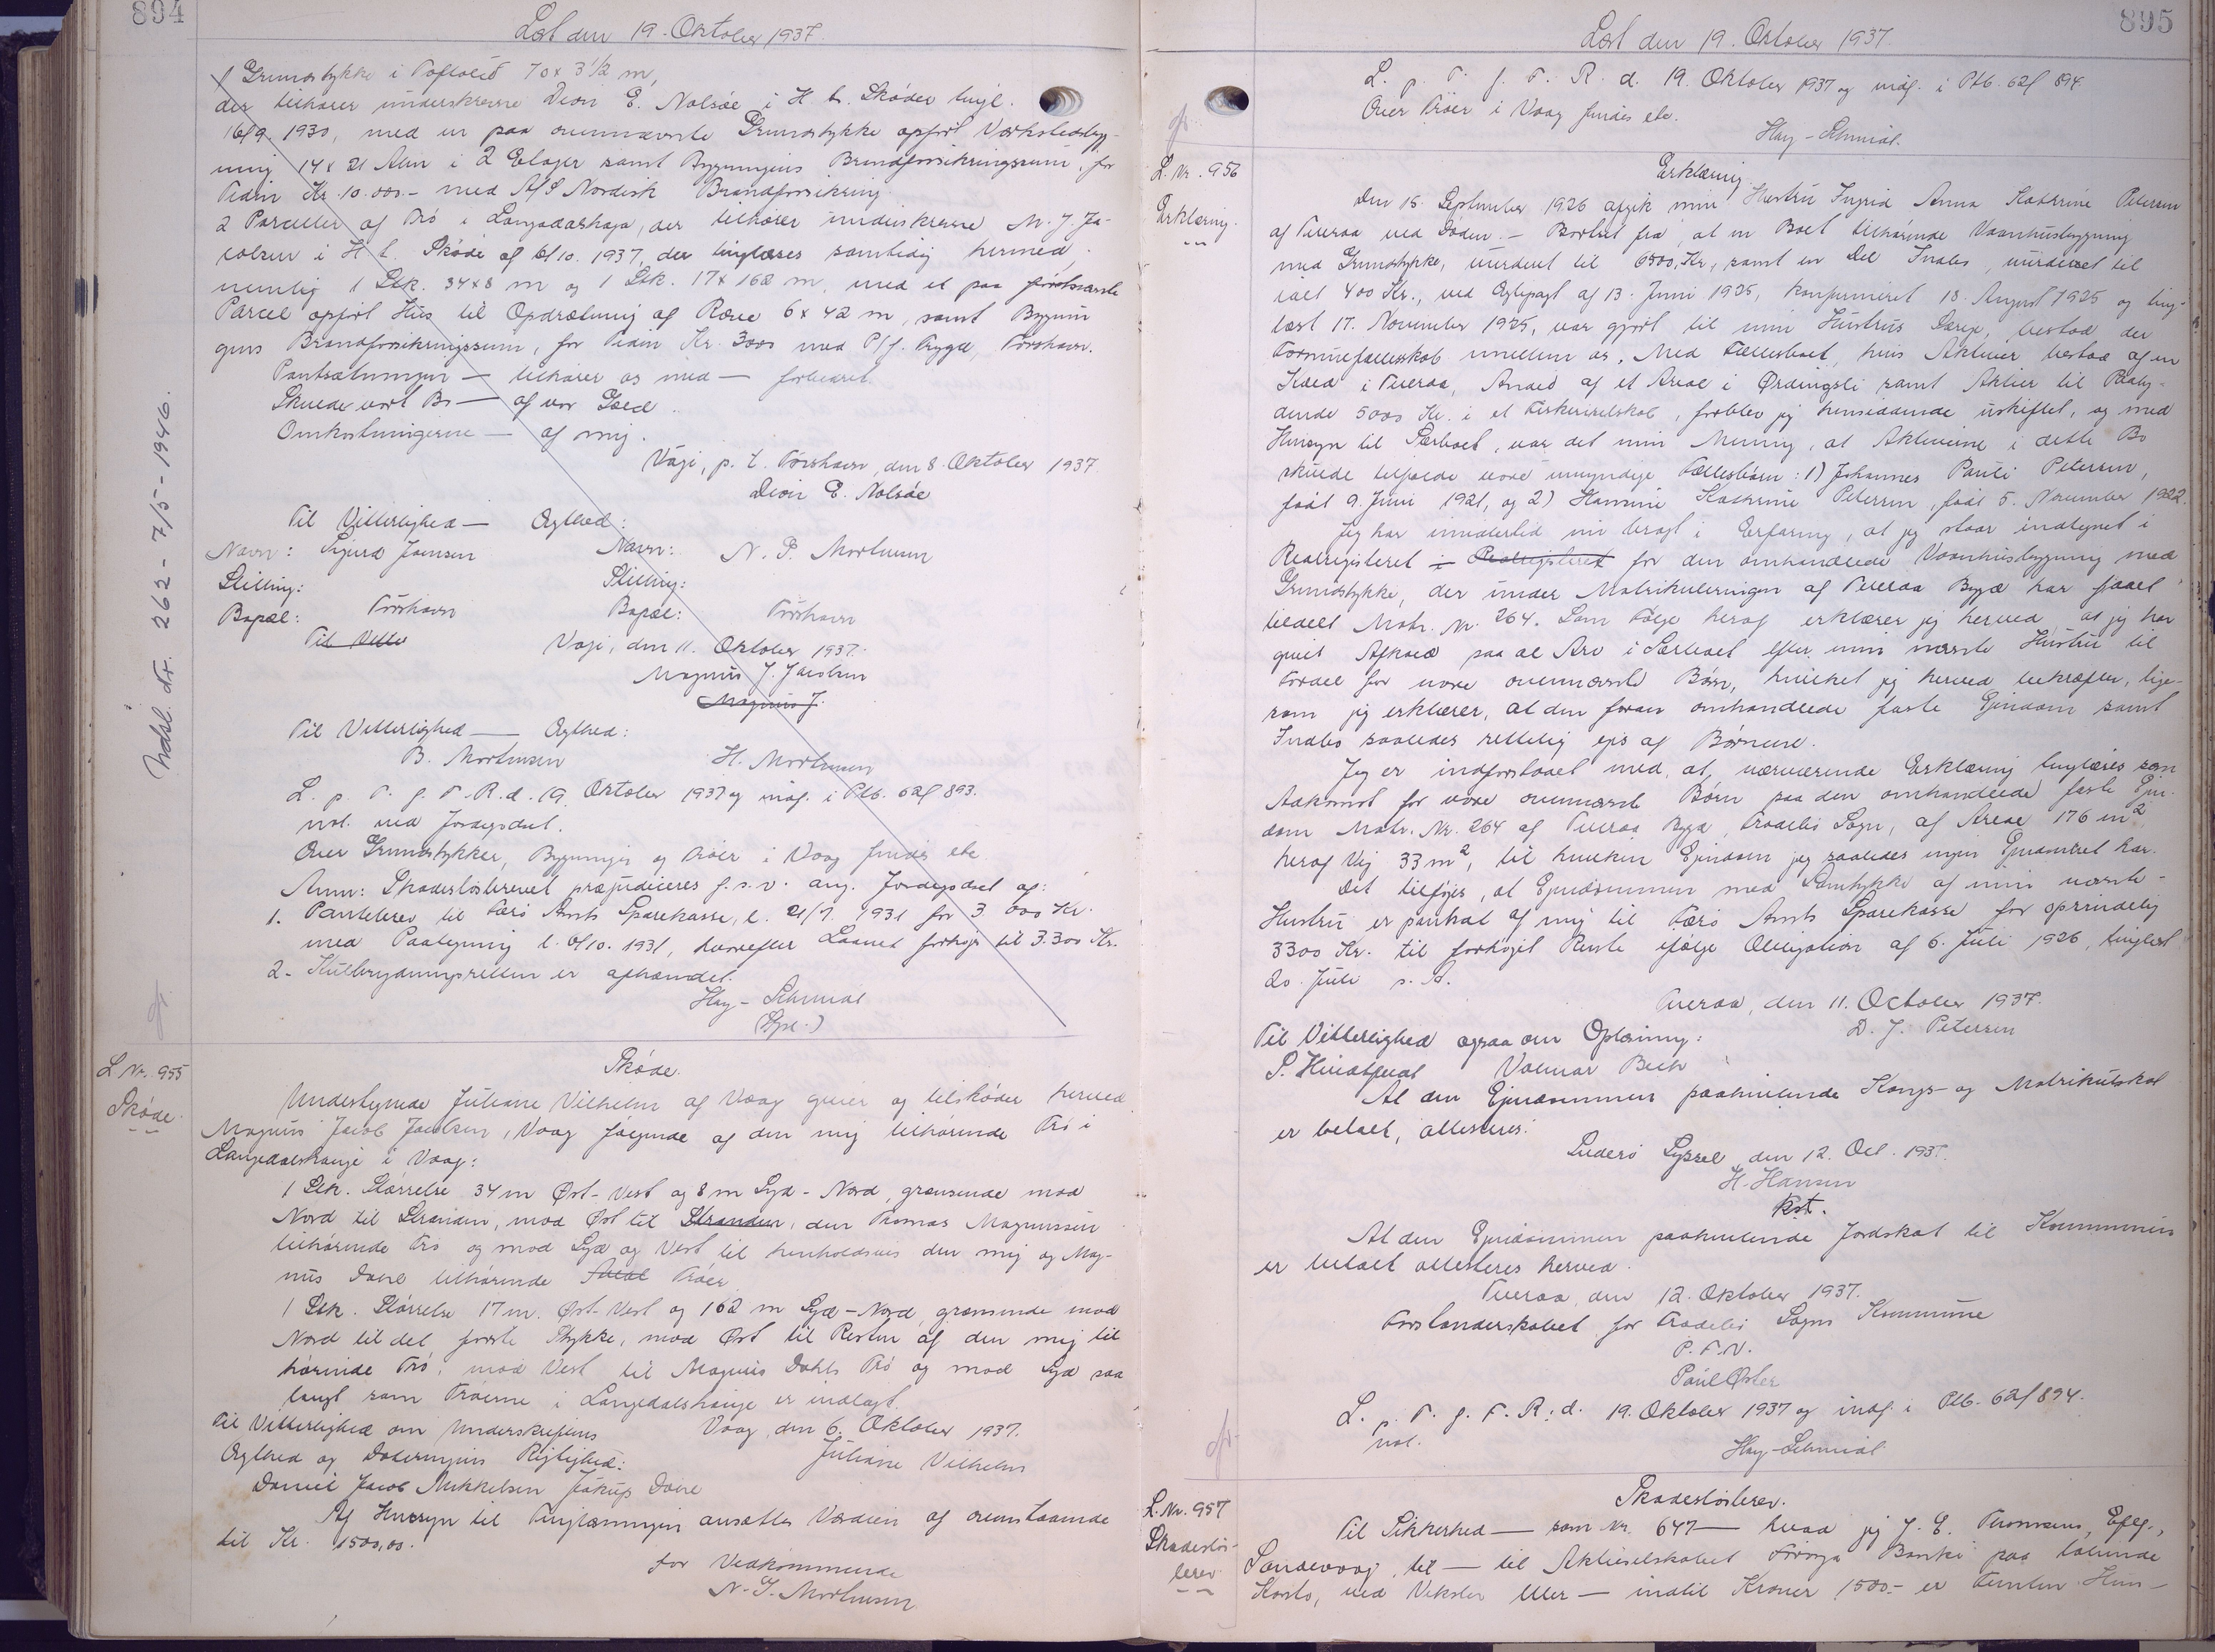 894
Læst den 19. Oktober 1937.
1 Grundstykke i Toftolid 70 x 3 1/2 m,
der tilhører underskrevne Dion E. Nolsøe i H. t. Skøde tingl.
16/9. 1930, med en paa ovennævnte Grundstykke opført Værkstedsbyg-
ning 14 x 21 Alen i 2 Etager samt Bygningens Brandforsikringssum, for
Tiden Kr. 10.000.- med A/S Nordisk Brandforsikring.
2 Parceller af Trö i Langadalshaga, der tilhører underskrevne M. J. Ja-
cobsen i H. t. Skøde af 6/10. 1937, der tinglæses samtidig hermed,
nemlig 1 Stk. 34 x 8 m og 1 Stk. 17 x 162 m, med et paa førstnævnte
Parcel opført Hus til Opdrætning af Ræve 6 x 42 m, samt Bygnin
gens Brandforsikringssum, for Tiden Kr. 3000 med P/f. Trygd, Tórshavn.
Pantsætningen — tilhører os med — forbedret.
Skulde vort Bo — af vor Gæld.
Omkostningerne — af mig.
Vági, p. t. Tórshavn, den 8. Oktober 1937.
Dion E. Nolsøe
Til Vitterlighed — Ægthed:
Navn: Sigurd Joensen Navn: N. P. Mortensen
Stilling: Stilling:
Bopæl: Tórshavn Bopæl: Tórshavn
Til Vitte Vági, den 11. Oktober 1937.
Magnus J. Jacobsen
Magnus J.
Til Vitterlighed — Ægthed:
B. Mortensen H. Mortensen
L. p. T. f. F. R. d. 19. Oktober 1937 og indf. i Ptb. 62f 893.
not. ved Jordegodset.
Over Grundstykker, Bygninger og Tröer i Vaag findes ebe
Anm: Skadesløsbrevet præjudiceres f. s. v. ang. Jordegodset af:
1. Pantebrev til Færö Amts Sparekasse, t. 21/7. 1931 for 3.000 Kr.
med Paategning t. 6/10. 1931, hvorefter Laanet forhøjes til 3.300 Kr.
2. Kulbrydningsretten er afhændet.
Hay-Schmidt
(Gpl.)
Udsl. Nr. 262 - 7/5 - 1946.
L. Nr. 955
Skøde.
Skøde.
Undertegnede Juliane Vilhelm af Vaag giver og tilskøder herved
Magnus Jacob Jacobsen, Vaag følgende af den mig tilhørende Trö i
Langedalshauje i Vaag:
1 Stk. Størrelse 34 m Øst-Vest og 8 m Syd-Nord, grænsende mod
Nord til Stranden, mod Øst til Stranden, den Thomas Magnussen
tilhørende Trö og mod Syd og Vest til henholdsvis den mig og Mag-
nus Dahl tilhørende Tröer
1 Stk. Størrelse 17 m. Øst-Vest og 162 m Syd-Nord, grænsende mod
Nord til det første Stykke, mod Øst til Resten af den mig til
hørende Trö, mod Vest til Magnus Dahls Trö og mod Syd saa
langt som Tröerne i Langedalshauje er indlagt.
Til Vitterlighed om Underskriftens Vaag, den 6. Oktober 1937.
Ægthed og Dateringens Rigtighed: Juliane Vilhelm
Daniel Jacob Mikkelsen Jákup Dahl
Af Hensyn til Tinglæsningen ansættes Værdien af ovenstaaende
til Kr. 1500,00.
For Vedkommende
N. P. Mortensen
895
Læst den 19. Oktober 1937.
L. p. T. f. F. R. d. 19. Oktober 1937 og indf. i Ptb. 62f 894.
Over Tröer i Vaag findes ebe.
Hay-Schmidt.
L. Nr. 956
Erklæring.
Erklæring.
Den 15. September 1926 afgik min Hustru Ingrid Anna Katrine Petersen
af Tveraa ved Døden. - Bortset fra, at en Boet tilhørende Vaanhusbygning
med Grundstykke, vurderet til 6500 Kr., samt en Del Indbo, vurderet til
ialt 400 Kr., ved Ægtepagt af 13. Juni 1925, konfirmeret 18. August 1925 og ting-
læst 17. November 1925, var gjort til min Hustrus Særeje, bestod der
Formuefællesskab mellem os. Med Fællesboet, hvis Aktiver bestod af en
Kælder i Tveraa, Andel af et Areal i Ørdingsli samt Aktier til Paaly-
dende 5000 Kr. i et Fiskeriselskab, forblev jeg hensiddende i uskiftet, og med
Hensyn til Særboet, var det min Mening, at Aktiverne i dette Bo
skulde tilfalde vore umyndige Fællesbørn: 1) Johannes Pauli Petersen,
født 9. Juni 1921, og 2) Hansine Kathrine Petersen, født 5. November 1922.
Jeg har imidlertid nu bragt i Erfaring, at jeg staar indtegnet i
Realregisteret i Realregisteret for den omhandlede Vaanhusbygning med
Grundstykke, der under Matrikuleringen af Tveraa Bygd har faaet
tildelt Matr. Nr. 264. Som Følge heraf erklærer jeg herved, at jeg har
givet Afkald paa al Arv i Særboet efter min nævnte Hustru til
Fordel for vore ovennævnte Børn, hvilket jeg herved bekræfter, lige-
som jeg erklærer, at den foran omhandlede faste Ejendom samt
Indbo saaledes rettelig ejes af Børnene.
Jeg er indforstaaet med, at nærværende Erklæring tinglæses som
Adkomst for vore ovennævnte Børn paa den omhandlede faste Ejen-
dom Matr. Nr. 264 af Tveraa Bygd, Trodebø Sogn, af Areal 176 m²
heraf Vej 33 m², til hvilken Ejendom jeg saaledes ingen Ejendomsret har.
Det tilføjes, at Ejendommen med Samtykke af min nævnte
Hustru er pantsat af mig til Færö Amts Sparekasse for oprindelig
3300 Kr. til forhøjet Rente ifølge Obligation af 6. Juli 1926, tinglæst
20. Juli s. A.
Tveraa, den 11. October 1937.
Til Vitterlighed ogsaa om Oplæsning: D. J. Petersen
P. Hindsfeldt Valmar Bech
At den Ejendommen paahvilende Kongs- og Matrikulskat
er betalt, attesteres.
Suderö Syssel, den 12. Oct. 1937.
H. Hansen
kst.
At den Ejendommen paahvilende Jordskat til Kommunen
er betalt attesteres herved.
Tveraa, den 12. Oktober 1937.
Forstanderskabet for Trodebø Sogns Kommune
P. F. V.
Pául Øster
L. p. T. f. F. R. d. 19. Oktober 1937 og indf. i Ptb. 62f 894.
not.
Hay-Schmidt
L. Nr. 957
Skadesløs-
brev
Skadesløsbrev.
Til Sikkerhed — som Nr. 647 — hvad jeg J. E. Thomsens, Eftf.,
Sandevaag, til — til Aktieselskabet Föroya Banki paa løbende
Konto, ved Veksler eller — indtil Kroner 1500.- er Femten Hun-